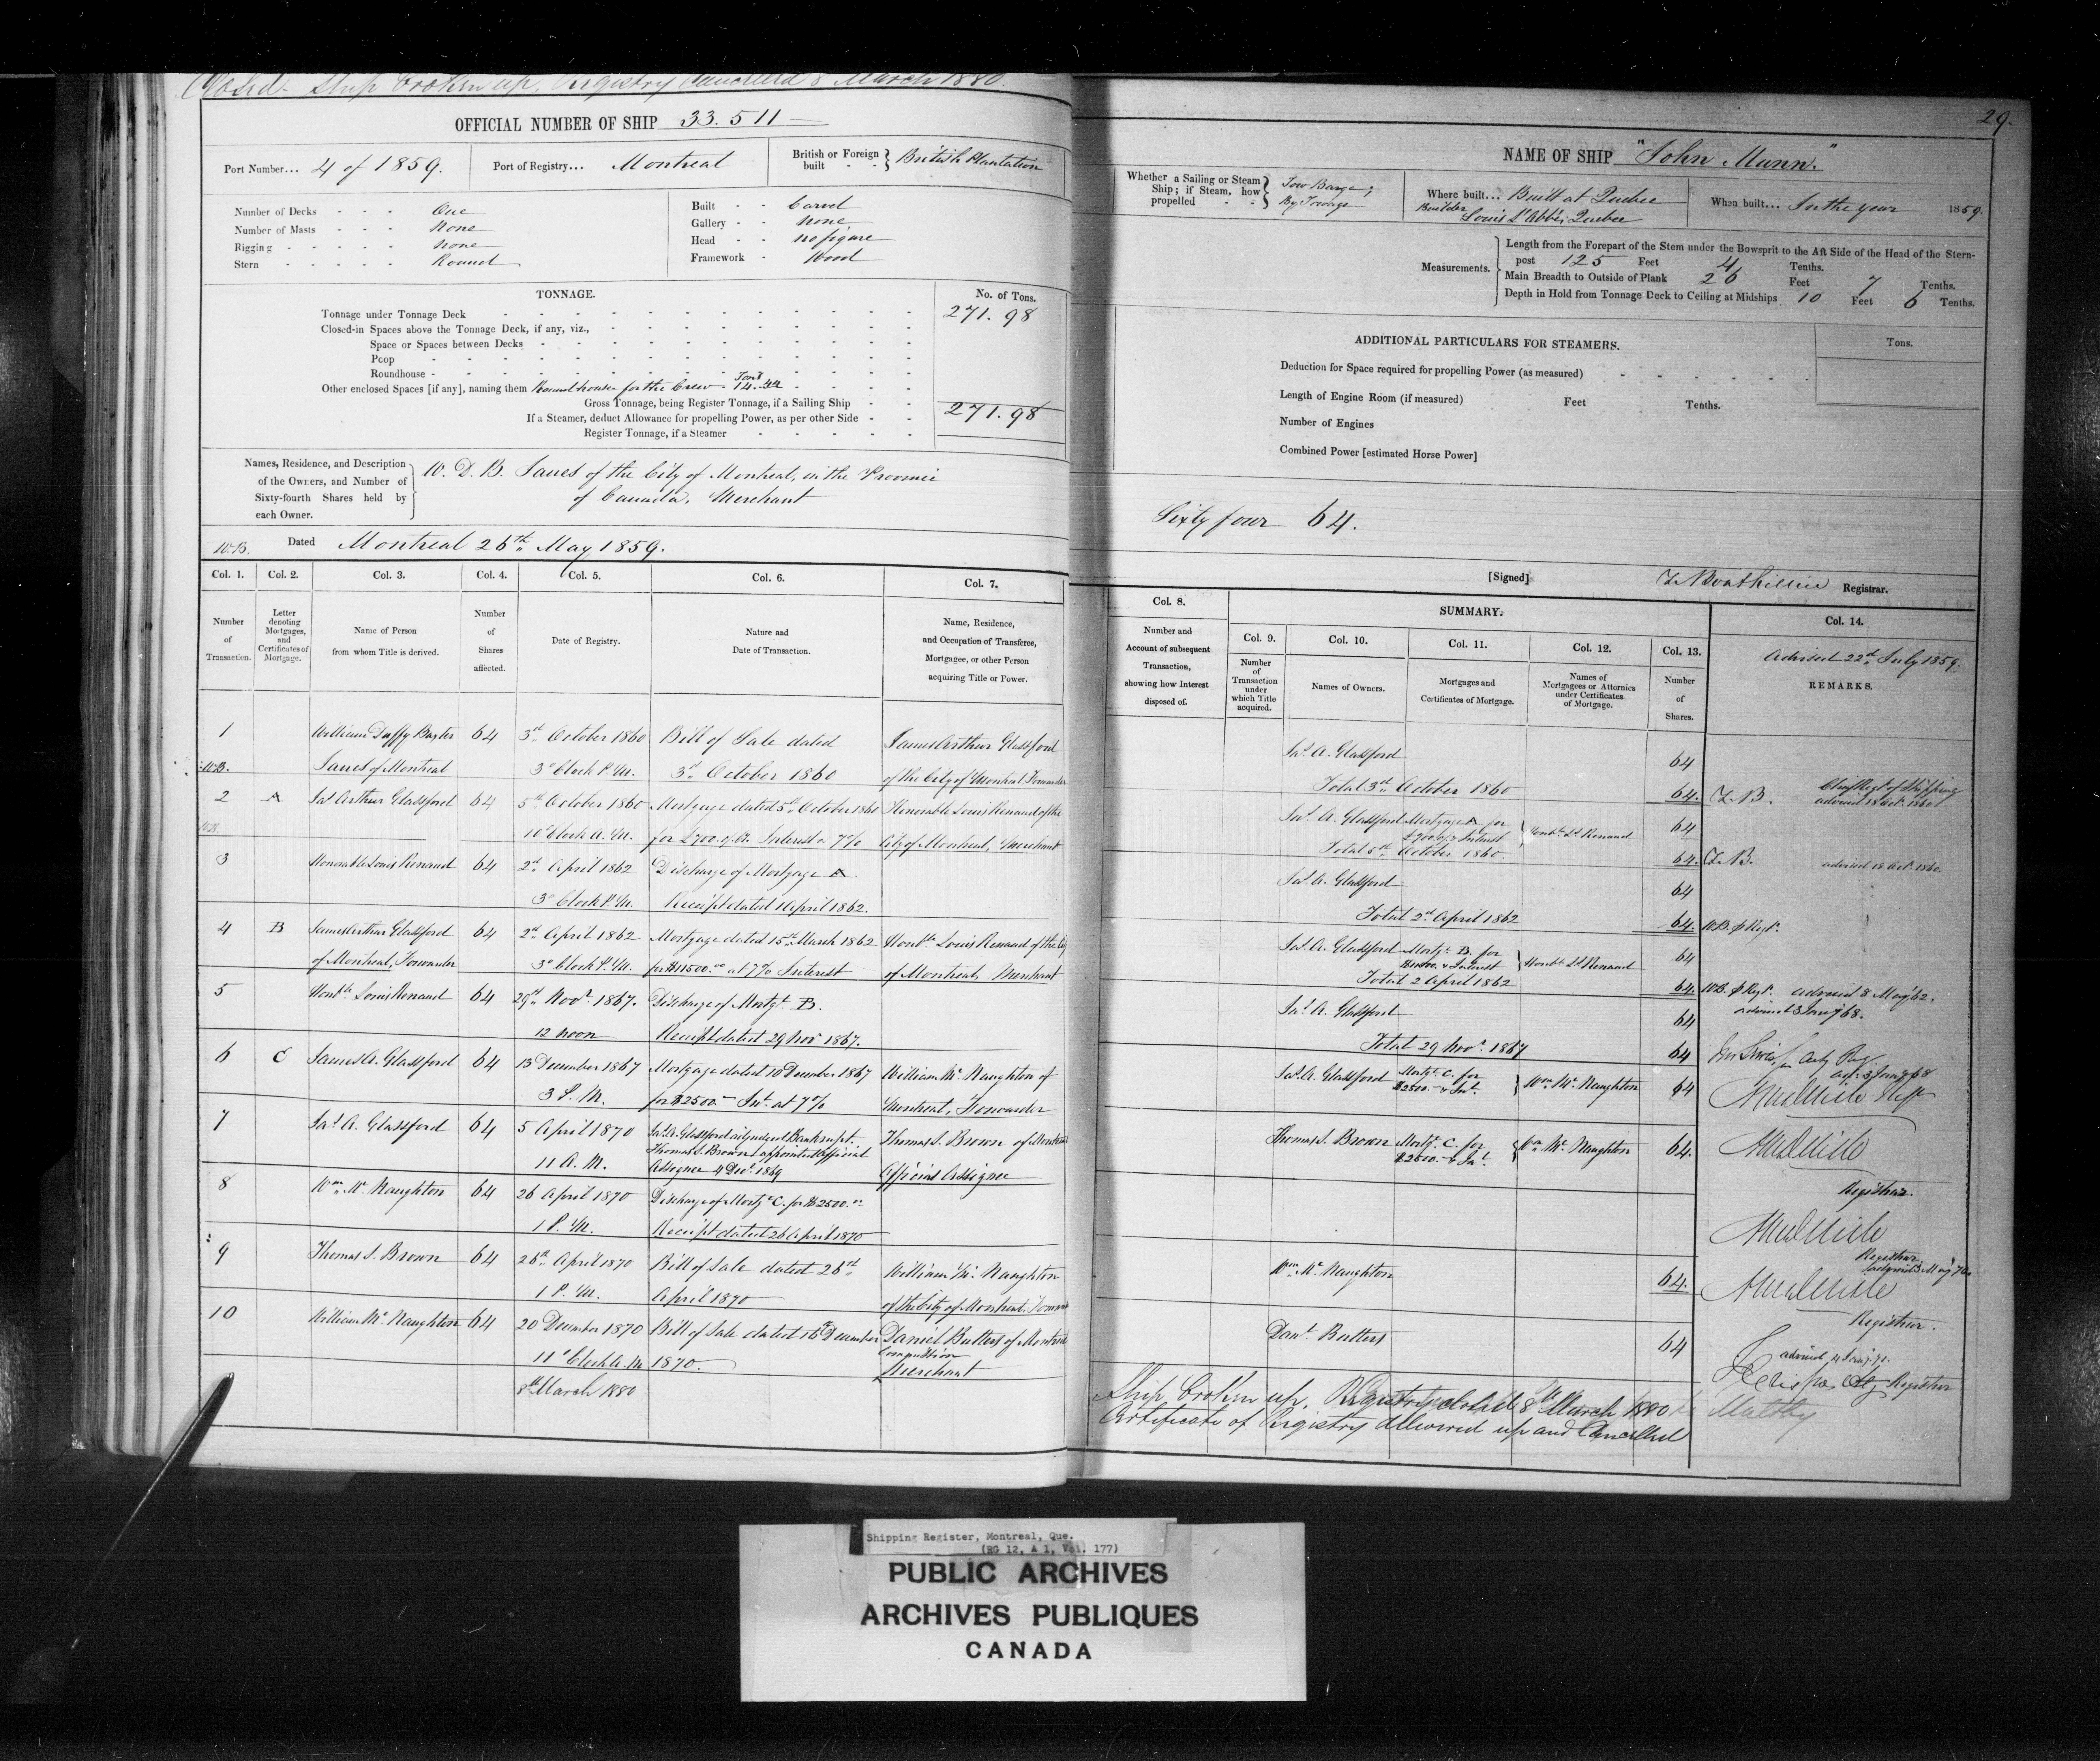 Closed - Ship broken up. Registry Cancelled 8 March 1880.
OFFICIAL NUMBER OF SHIP 33.511
Port Number... 4 of 1859. Port of Registry... Montreal British or Foreign built - - } British Plantation
Number of Decks - - - One
Number of Masts - - - None
Rigging - - - - - None
Stern - - - - - Round
Built - - Carvel
Gallery - - None
Head - - no figure
Framework - Wood
TONNAGE. No. of Tons.
Tonnage under Tonnage Deck 271.98
Closed-in Spaces above the Tonnage Deck, if any, viz.,
Space or Spaces between Decks
Poop
Roundhouse
Other enclosed Spaces [if any], naming them Round house for the Crew. Tons 14.44
Gross Tonnage, being Register Tonnage, if a Sailing Ship 271.98
If a Steamer, deduct Allowance for propelling Power, as per other Side
Register Tonnage, if a Steamer
Names, Residence, and Description of the Owners, and Number of Sixty-fourth Shares held by each Owner. } W. D. B. Janes of the City of Montreal, in the Province
of Canada. Merchant
W.B. Dated Montreal 26th May 1859.
Col. 1. Col. 2. Col. 3. Col. 4. Col. 5. Col. 6. Col. 7.
Number of Transaction.
Letter denoting Mortgages, and Certificates of Mortgage.
Name of Person from whom Title is derived.
Number of Shares affected.
Date of Registry.
Nature and Date of Transaction.
Name, Residence, and Occupation of Transferee, Mortgagee, or other Person acquiring Title or Power.
1 William Duffy Baxter 64 3rd October 1860 Bill of Sale dated James Arthur Glassford
W.B. Janes of Montreal 3 o'Clock P.M. 3rd October 1860 of the City of Montreal, Forwarder
2 A Jas. Arthur Glassford 64 5th October 1860 Mortgage dated 5th October 1860 Honorable Louis Renaud of the
W.B. 10 o'Clock A.M. for £700. of Cy. Interest @ 7% City of Montreal, Merchant
3 Honorable Louis Renaud 64 2nd April 1862 Discharge of Mortgage A.
3 o'Clock P.M. Receipt dated 1 April 1862.
4 B James Arthur Glassford 64 2nd April 1862 Mortgage dated 15th March 1862 Honble. Louis Renaud of the City
of Montreal, Forwarder 3 o'Clock P.M. for $11500.00 at 7% Interest of Montreal, Merchant
5 Honble. Louis Renaud 64 29th Novr. 1867. Discharge of Mortge. B.
12 noon Receipt dated 29 Novr 1867.
6 C James A. Glassford 64 13 December 1867 Mortgage dated 10 December 1867 William Mc Naughton of
3 P.M. for $2500.- Int. at 7% Montreal, Forwarder
7 Jas. A. Glassford 64 5 April 1870 Jas. A. Glassford adjudged Bankrupt. Thomas S. Brown of Montreal
11 A.M. Thomas S. Brown appointed Official
Assignee 4 Decr. 1869 Official Assignee
8 Wm. Mc Naughton 64 26 April 1870 Discharge of Mortge C. for $2500.00
1 P.M. Receipt dated 26 April 1870
9 Thomas S. Brown 64 26th April 1870 Bill of Sale dated 26th William Mc Naughton
1 P.M. April 1870 of the City of Montreal, Forwarder
10 William Mc Naughton 64 20 December 1870 Bill of Sale dated 16th December Daniel Butters of Montreal
11 o'Clock A.M. 1870. Commission
Merchant
8th March 1880
29.
NAME OF SHIP "John Munn."
Whether a Sailing or Steam Ship; if Steam, how propelled - - } Tow Barge; By Towage
Where built... Built at Quebec
Builder Louis L'Abbé, Quebec
When built... In the year 1859.
Measurements. Length from the Forepart of the Stem under the Bowsprit to the Aft Side of the Head of the Stern-
post 125 Feet 4 Tenths.
Main Breadth to Outside of Plank 26 Feet 7 Tenths.
Depth in Hold from Tonnage Deck to Ceiling at Midships 10 Feet 6 Tenths.
ADDITIONAL PARTICULARS FOR STEAMERS. Tons.
Deduction for Space required for propelling Power (as measured)
Length of Engine Room (if measured) Feet Tenths.
Number of Engines
Combined Power [estimated Horse Power]
Sixty four 64.
[Signed] Registrar.
Col. 8. SUMMARY. Col. 14.
Number and Account of subsequent Transaction, showing how Interest disposed of.
Col. 9. Col. 10. Col. 11. Col. 12. Col. 13.
Number of Transaction under which Title acquired.
Names of Owners.
Mortgages and Certificates of Mortgage.
Names of Mortgagees or Attornies under Certificates of Mortgage.
Number of Shares.
Advised 22nd July 1859.
REMARKS.
Jas. A. Glassford 64
Total 3rd October 1860 64. Chief Regr. of Shipping
advised 18 Oct. 1860
Jas. A. Glassford Mortgage A for £700 cy & Interest } Honble. Ls. Renaud 64
Total 5th October 1860. 64. advised 18 Oct. 1860.
Jas. A. Glassford 64
Total 2nd April 1862 64.
Jas. A. Glassford Mortge. B. for $11500. & Interest } Honble Ls Renaud 64
Total 2 April 1862 64. advised 8 May '62.
advised 3 Jany '68.
Jas. A. Glassford 64
Total 29 Novr. 1867 64
Jas. A. Glassford Mortge. C. for $2500.- & Int. } Wm. Mc Naughton 64
Thomas S. Brown Mortge. C. for $2500.- & Int. } Wm. Mc Naughton 64.
Registrar.
Registrar
advised 3 May 70
Wm. Mc Naughton 64.
Registrar.
Danl. Butters 64
advised 4 Jany. 71.
Registrar
Ship broken up. Registry closed 8th March 1880
Certificate of Registry delivered up and Cancelled
Shipping Register, Montreal, Que.
(RG 12, A 1, Vol. 177)
PUBLIC ARCHIVES
ARCHIVES PUBLIQUES
CANADA